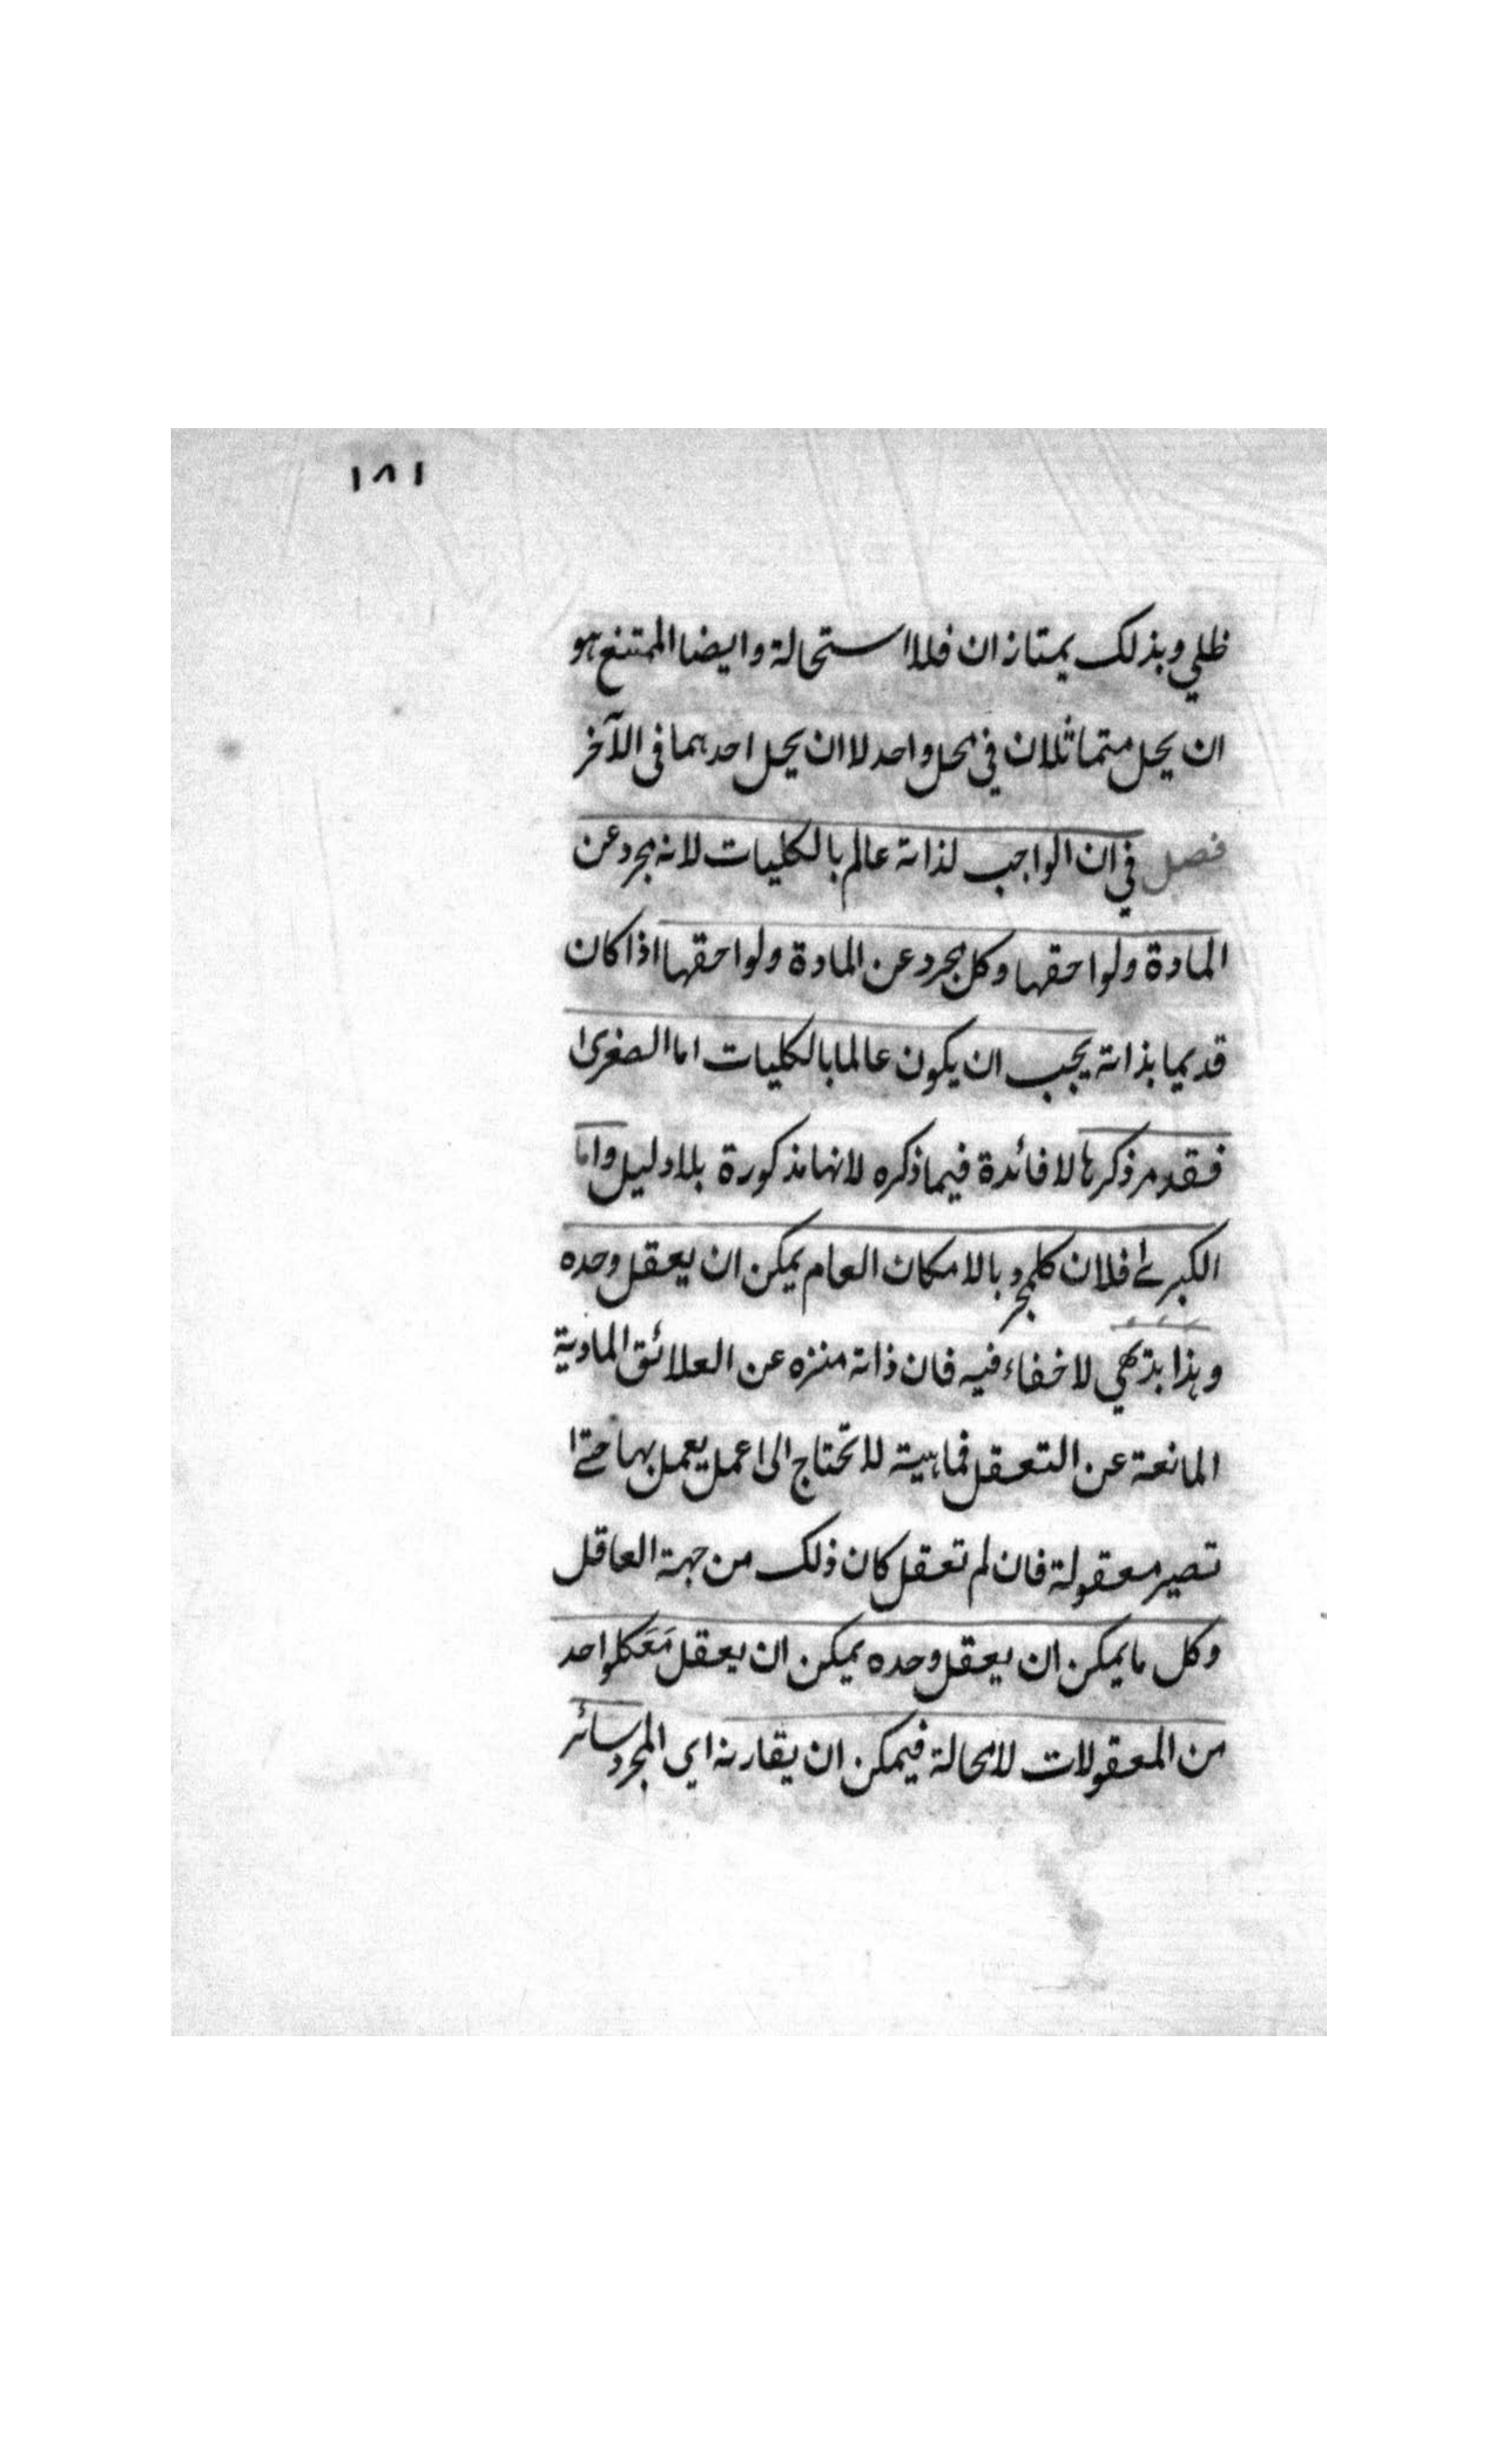 ١٨١
ظلي وبذلك يمتازان فلا استحالة وايضا الممتنع هو
ان يحل متماثلان في محل واحد لا ان يحل احدهما في الآخر
فصل في ان الواجب لذاته عالم بالكليات لانه مجرد عن
المادة ولواحقها وكل مجرد عن المادة ولواحقها اذا كان
قديما بذاته يجب ان يكون عالما بالكليات اما الصغرى
فقد مر ذكرها لا فائدة فيما ذكره لانها مذكورة بلا دليل واما
الكبرى فلان كل مجرد بالامكان العام يمكن ان يعقل وحده
وهذا بديهي لا خفاء فيه فان ذاته منزه عن العلائق المادية
المانعة عن التعقل فماهيته لا تحتاج الى عمل يعمل بها حتى
تصير معقولة فان لم تعقل كان ذلك من جهة العاقل
وكل ما يمكن ان يعقل وحده يمكن ان يعقل مَعَ كل واحد
من المعقولات لا محالة فيمكن ان يقارنه اي المجرد سائر